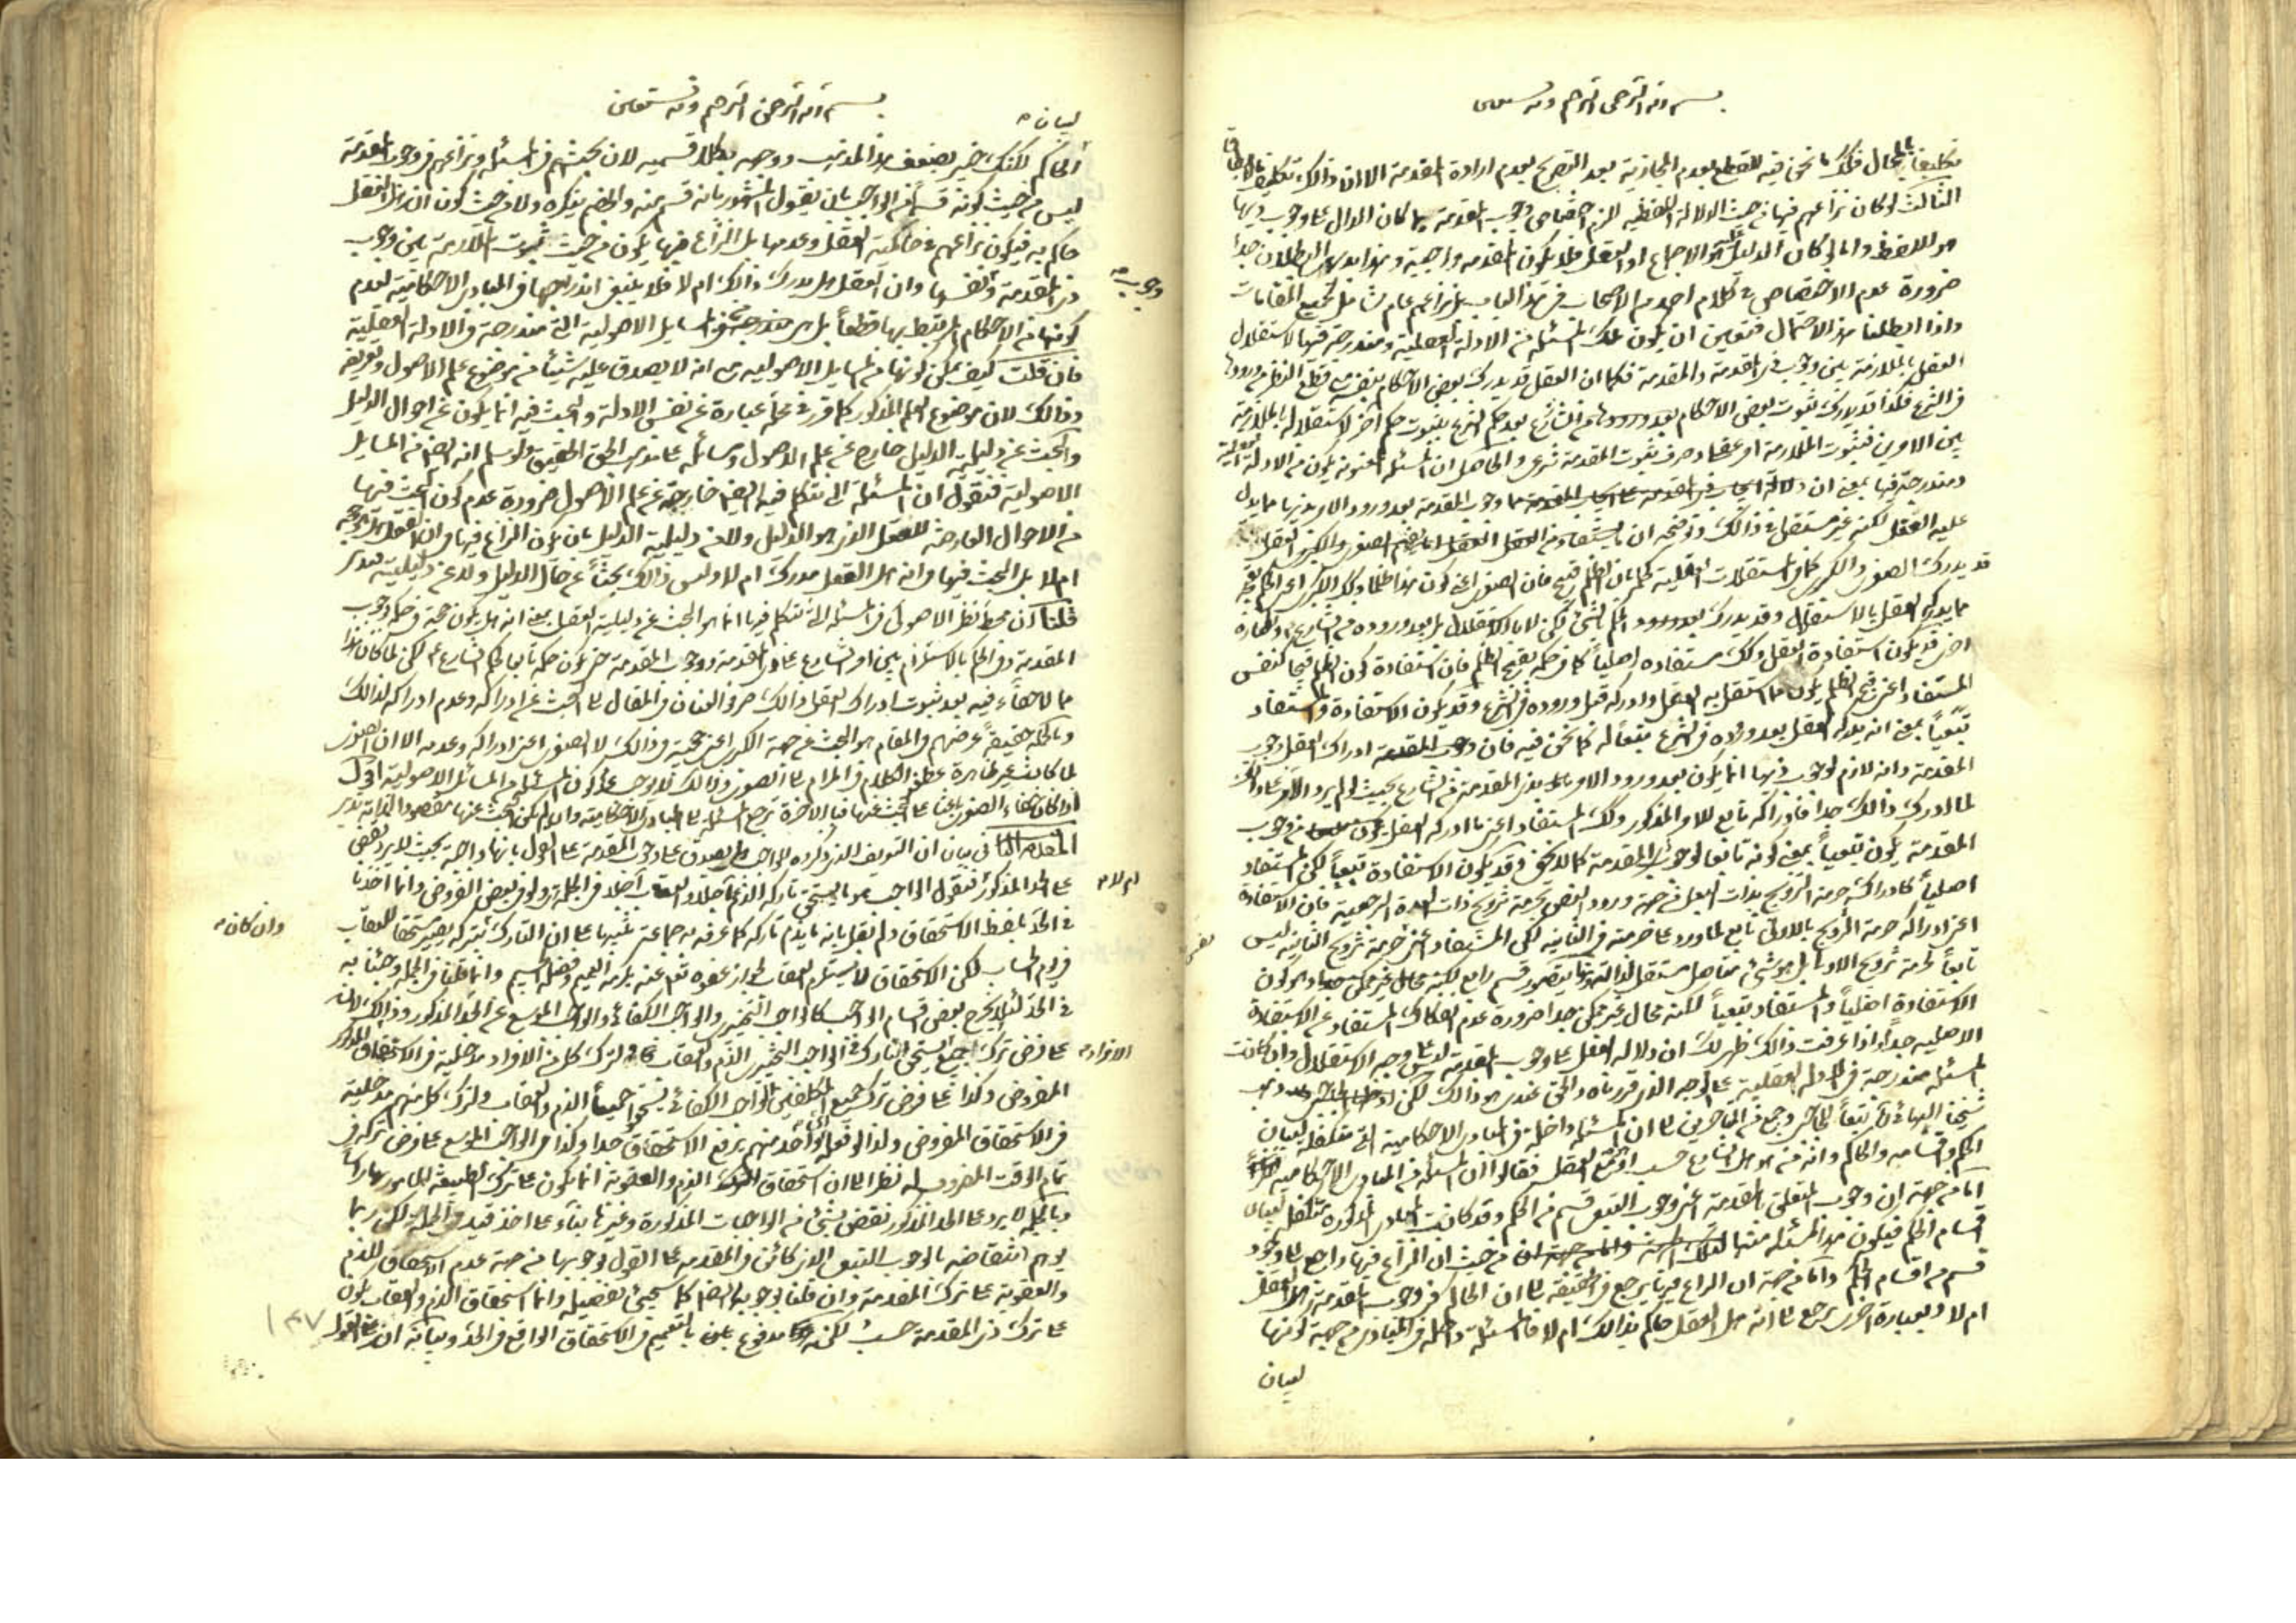 بسم الله الرحمن الرحيم وبه نستعين
تكليفاً بالمحال فكك ما نحن فيه للقطع بعدم المجازية بعد التصريح بعدم ارادة المقدمة الا ان ذالك تكليف
الثالث لو كان نزاعهم فيها من حيث الدلالة اللفظية لزم اختصاص وجوب المقدمة بما كان الدال على وجوب ذيها
هو اللفظ واما لو كان الدليل هو الاجماع او العقل فلا يكون المقدمة واجبة وهذا بديهى البطلان جدا
ضرورة عدم الاختصاص فى كلام احد من الاصحاب فى هذا الباب بل نزاعهم عام شامل لجميع المقامات
واذا ابطلنا هذا الاحتمال فتعين ان يكون تلك المسئلة من الادلة العقلية ومندرجة فيها لاستقلال
العقل بالملازمة بين وجوب ذى المقدمة والمقدمة فكما ان العقل قد يدرك بعض الاحكام بنفسه مع قطع النظر عن ورودها
فى الشرع فكذا قد يدرك ثبوت بعض الاحكام بعد ورودها من الشارع بعد حكم الشرع بثبوت حكم آخر لاستقلاله بالملازمة
بين الامرين فثبوت الملازمة امر عقلى وصرف ثبوت المقدمة شرعى والحاصل ان المسئلة المعنونة يكون من الادلة العقلية
ومندرجة فيها بمعنى ان دلالة ايجاب ذى المقدمة على ايجاب المقدمة وجوب المقدمة بعد ورود الامر بذيها مما يدل
عليه العقل لكنه غير مستقل فى ذالك وتوضيحه ان ما يستفاد من العقل
قد يدرك الصغرى والكبرى كما فى المستقلات العقلية كحكمه بان الظلم قبيح فان الصغرى اعنى كون هذا ظلما وكذا الكبرى اعنى الحكم بقبحه
مما يدركه العقل بالاستقلال وقد يدرك بعد ورود الحكم الشئ لكن لا بالاستقلال بل بعد وروده من الشارع
اخرى قد يكون استفادة العقل وكك مستفاده اصلياً كما فى حكمه بقبح الظلم فان استفادة كون الظلم قبيحا كنفس
المستفاد اعنى قبح الظلم يكون مما استقل به العقل وادركه قبل وروده فى الشرع وقد يكون الاستفادة والمستفاد
تبعياً بمعنى انه يدركه العقل بعد وروده فى الشرع تبعاً له كما نحن فيه فان ادراك العقل وجوب
المقدمة وانه لازم لوجوب ذيها انما يكون بعد ورود الامر بذى المقدمة من الشارع بحيث لو لم يرد الامر
لما ادرك ذالك جدا فادراكه تابع للامر المذكور وكك المستفاد اعنى ما ادركه العقل من وجوب
المقدمة يكون تبعياً بمعنى كونه تابعا لوجوب ذى المقدمة كما لا يخفى وقد يكون الاستفادة تبعياً لكن المستفاد
اصلياً كادراك حرمة التزويج بذات البعل من جهة ورود النص بحرمة تزويج ذات العدة الرجعية فان الاستفادة
اعنى ادراكه حرمة التزويج بالاولى تابع لما ورد على حرمته فى الثانية لكن المستفاد اعنى حرمة تزويج الثانية ليس
تابعاً لحرمة تزويج الاولى بل هو شئ متاصل مستقل لذاته ويتصور قسم رابع لكنه وهو كون
الاستفادة اصلياً والمستفاد تبعياً لكنه محال غير ممكن جدا ضرورة عدم انفكاك المستفاد عن الاستفادة
الاصلية جدا واذا عرفت ذالك ظهر لك ان دلالة العقل على وجوب المقدمة ليس على وجه الاستقلال وان كانت
المسئلة مندرجة فى الادلة العقلية على الوجه الذى قررناه والحق عندى هو ذالك لكن
شيخنا البهائى تبعاً للحاجبى وجمع من المتاخرين الى ان المسئلة داخلة فى المبادى الاحكامية التى متكفلة لبيان
الحكم واقسامه والحاكم وانه من هو هل الشارع حسب او مع العقل فقالوا ان المسئلة من المبادى الاحكامية
اما من جهة ان وجوب المتعلق المقدمة اعنى وجوب التبعى قسم من الحكم وقد كانت المبادى المذكورة متكفلة لبيان
اقسام الحكم فيكون هذا المسئلة منها من حيث ان النزاع فيها راجع الى وجود
قسم من اقسام الحكم واما من جهة ان النزاع فيها يرجع فى الحقيقة الى ان الحاكم فى وجوب المقدمة هل العقل
ام لا وبعبارة اخرى يرجع الى انه هل العقل حاكم بذالك ام لا فالمسئلة داخلة فى المبادى من جهة كونها
لبيان
بسم الله الرحمن الرحيم وبه نستعين
لبيان
الحاكم لكنك خبير بضعف هذا المذهب ووجهه بكلا قسميه لان بحثهم فى المسئلة ونزاعهم فى وجوب المقدمة
ليس من حيث كونه قسماً من الواجب بان يقول المشهور بانه قسم منه والخصم ينكره ولا من حيث كون ان هل العقل
حاكم به فيكون نزاعهم فى حاكمية العقل وعدمها بل النزاع فيها يكون من حيث ثبوت الملازمة بين وجوب
ذى المقدمة ونفسها وان العقل هل يدرك ذالك ام لا فلا ينبغى اندراجها فى المبادى الاحكامية لعدم
وجوب
كونها من الاحكام المرتبط بها قطعاً بل هى مندرجة فى المسايل الاصولية التى مندرجة فى الادلة العقلية
فان قلت كيف يمكن كونها من المسايل الاصولية مع انه لا يصدق عليه شيئاً من موضوع علم الاصول وتعريفه
وذالك لان موضوع العلم المذكور كما قرر فى محله عبارة عن نفس الادلة والبحث فيه انما يكون عن احوال الدليل
والبحث عن دليلية الدليل خارج عن علم الاصول ومسائله على ما هو الحق الحقيق ولو سلم انه ايضا من المسايل
الاصولية فنقول ان المسئلة التى نتكلم فيه ايضا خارجة عن علم الاصول ضرورة عدم كون البحث فيها
من الاحوال العارضة للعقل الذى هو الدليل ولا من دليلية الدليل بان يكون النزاع فيها فى ان العقل هل هو حجة
ام لا بل البحث فيها فى انه هل العقل مدرك ام لا وليس ذالك بحثاً عن حال الدليل ولا عن دليليته
قلنا ان محط نظر الاصولى فى المسئلة التى نتكلم فيها انما هو البحث عن دليلية العقل بمعنى انه هل يكون حجة فى حكمه بوجوب
المقدمة وفى الحكم بالاستلزام بين امر الشارع على ذى المقدمة ووجوب المقدمة حتى يكون حكمه تابعا لحكم الشارع ام لا لكن لما كان هذا
مما لا خفاء فيه بعد ثبوت ادراك العقل ذالك صرفوا العنان فى المقال الى البحث عن ادراكه وعدم ادراكه لذالك
وبالجملة حقيقة غرضهم فى المقام هو البحث عن جهة الكبرى اعنى حجية ذالك لا الصغرى اعنى ادراكه وعدمه الا ان الصغرى
لما كانت غير ظاهرة عطفوا الكلام فى المرام الى الصغرى وذالك لا يوجب عدم كون المسئلة من المسائل الاصولية
المقدمة الثانية فى بيان ان التعريف الذى ذكروه للواجب هل يصدق على وجوب المقدمة على القول بانها واجبة بحيث لا يرد نقض
على الحد المذكور فنقول الواجب هو ما يستحق تاركه الذم عاجلا والعقاب آجلا فى الجملة ولو فى بعض الفروض وانما اخذنا
ام لا
فى الحد لفظ الاستحقاق ولم نقل بانه ما يذم تاركه كما عرفه به جماعة تنبيها على ان التارك بتركه يصير مستحقا للعقاب
وان كان
فى يوم الحساب لكن الاستحقاق لا يستلزم العقاب لجواز عفوه تعالى عنه بكرمه العميم وفضله الجسيم وانما قلنا فى الجملة وجئنا به
فى الحد لئلا يخرج بعض اقسام الواجب كالواجب التخييرى والواجب الكفائى والواجب الموسع عن الحد المذكور وذالك لانه
على فرض ترك الجميع استحق التارك فى الواجب التخييرى الذم والعقاب لترك كل من الافراد مدخلية فى الاستحقاق المذكور
الافراد
المفروض وكذا على فرض ترك جميع المكلفين الواجب الكفائى يستحقوا جميعاً الذم والعقاب ولترك كل منهم مدخلية
فى الاستحقاق المفروض ولذا لو فعله احد منهم يرتفع الاستحقاق جدا وكذا فى الواجب الموسع على فرض تركه فى
تمام الوقت المضروب له نظرا الى ان استحقاق الذم والعقوبة انما يكون على ترك الطبيعة المامور بها
وبالجملة لا يرد على الحد المذكور نقض بشئ من الواجبات المذكورة وغيرها بناء على اخذ قيد فى الجملة لكن ربما
يوهم انتقاضه بالوجوب التبعى الذى كائن فى المقدمة على القول بوجوبها من جهة عدم استحقاق الذم
والعقوبة على ترك المقدمة وان قلنا بوجوبه ايضا كما سيجئ تفصيله وانما استحقاق الذم والعقاب يكون
على ترك ذى المقدمة حسب لكنه مدفوع بالتعميم فى الاستحقاق الواقع فى الحد وبيانه ان